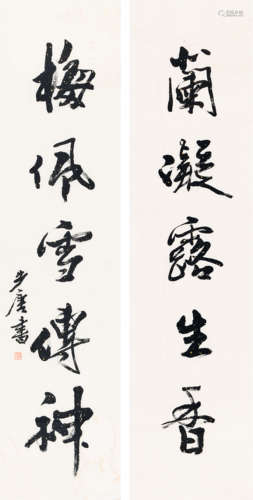 蘭凝露生香
梅佩雪傳神
步唐書